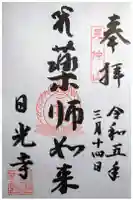 奉拝
令和五年
三月十四日
薬師如来
日光寺